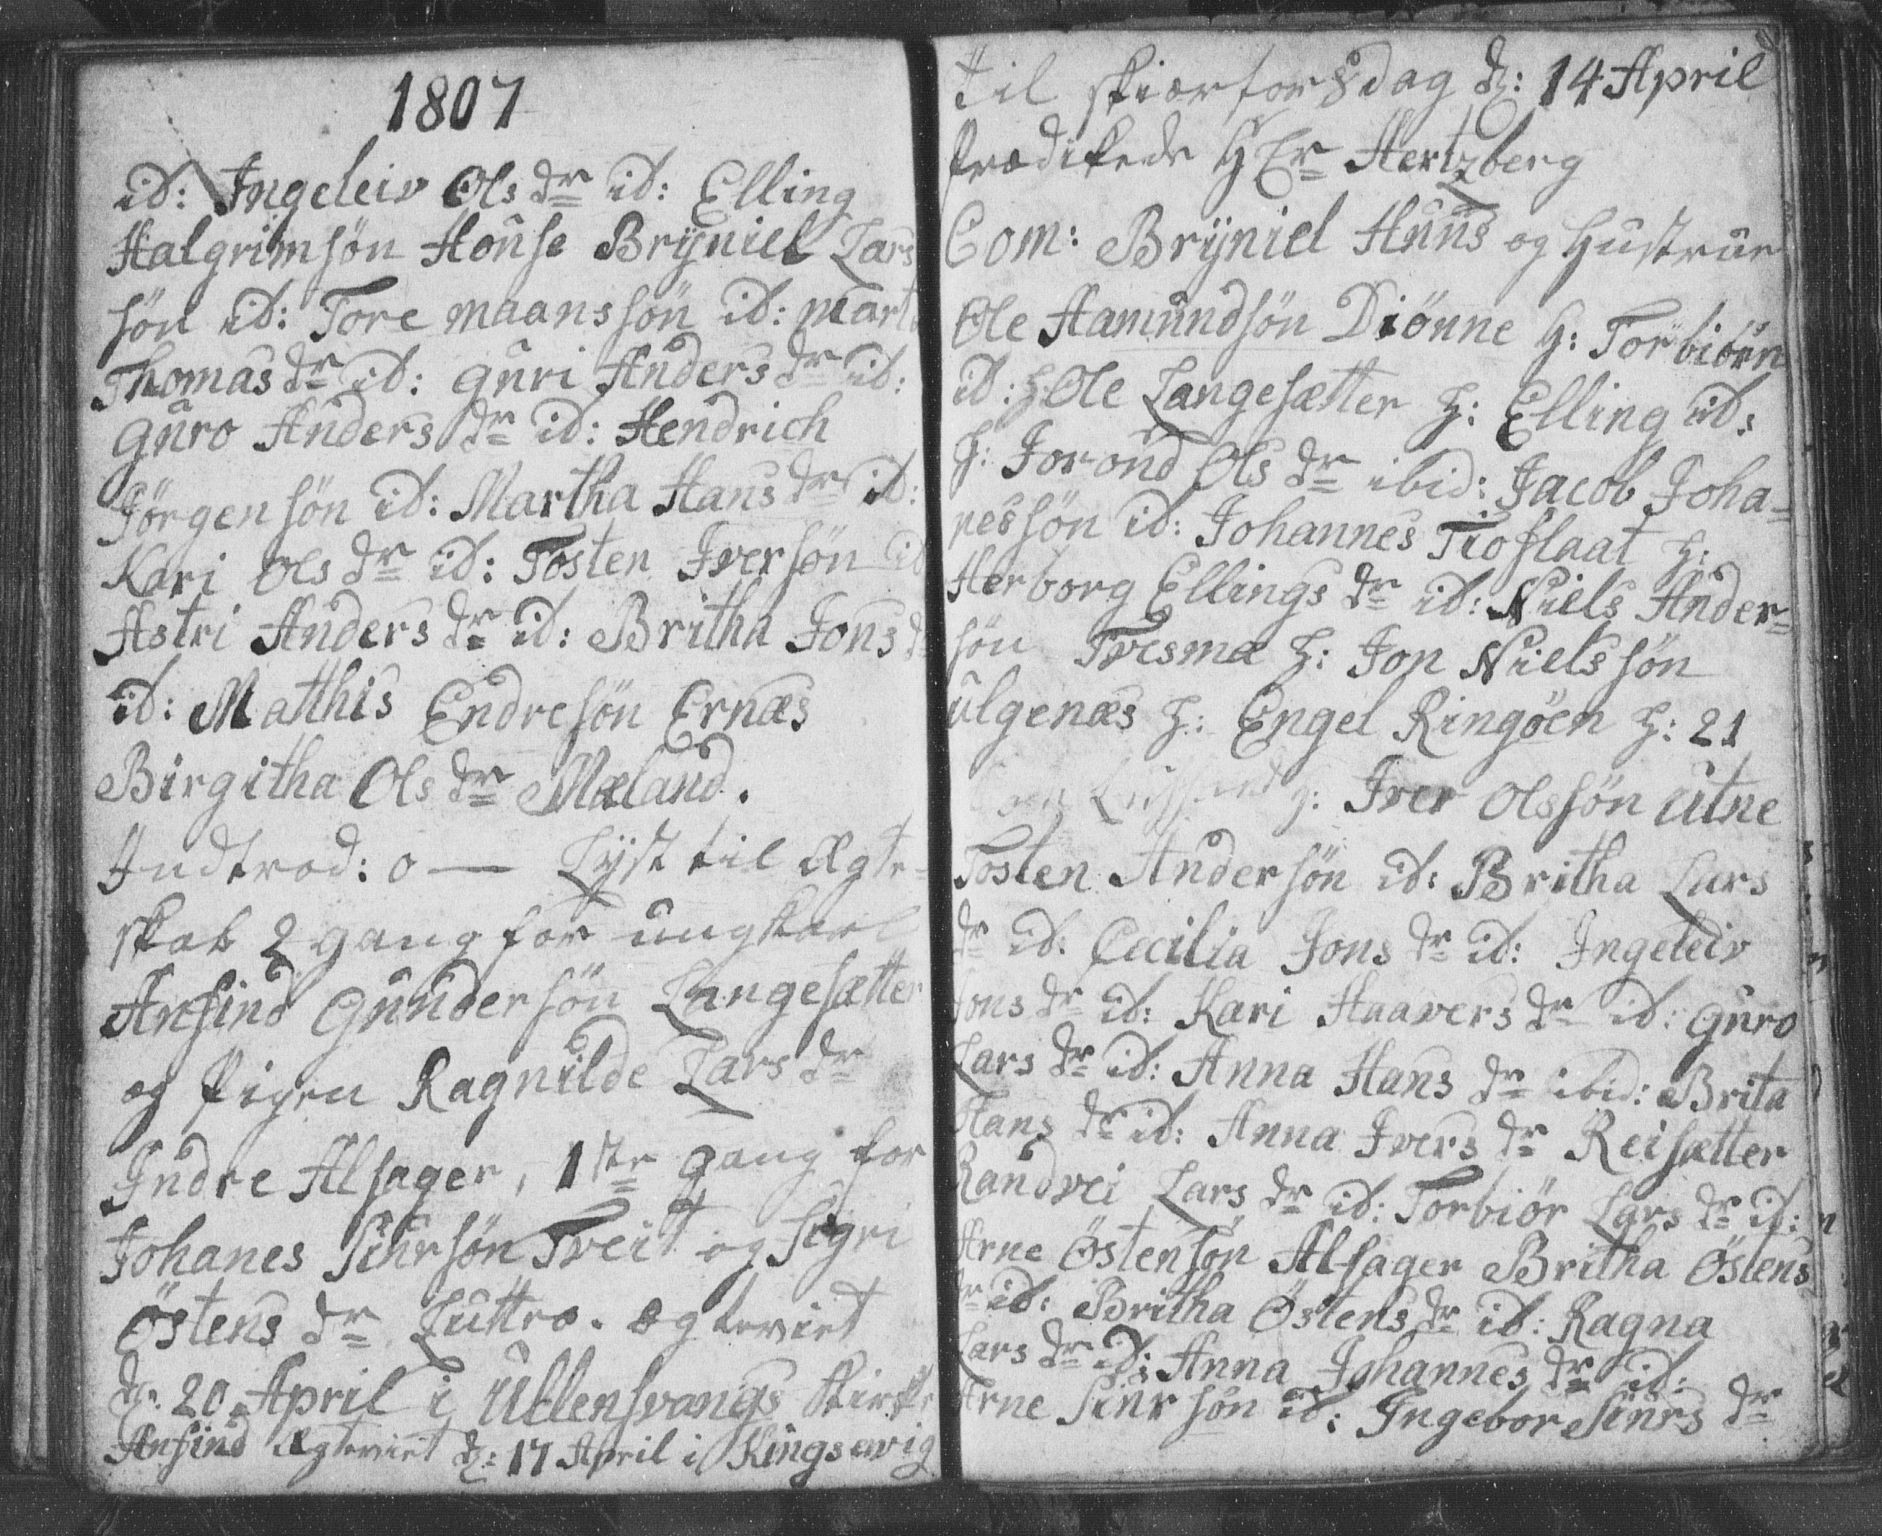 1807
id: Ingeleiv Ols dr id: Elling
Halgrimsøn Housе Brÿniel Lars
søn id: Tore maanssøn id: mart
Thomas dr id: guri Anders dr id:
guro Anders dr id: Hendrich
Jørgensøn id: Martha Hans dr id:
Kari Ols dr id: Tosten Iversøn id
Astri Anders dr id: Britha Jons dr
id: Matthis Endresøn Ernæs
Birgitha Ols dr Mæland.
Indtrod: 0 — Lÿst til Ægte-
skab 2 gang for ungkarl
Ansind Gundersøn Langesætter
og Pigen Ragnilde Lars dr
Indre Alsager, 1ste gang for
Johanes Siursøn Tveit og Sigri
Østens dr Luttro. ægteviet
d: 20 April i Ullensvangs Kirke
Ansind Ægteviet d: 17 April i Kingservig
til skiærtorsdag d: 14 April
Prædikede HEr Hertzberg
Com: Brÿniel Huus og Hustrue
Ole Aamundsøn Diønne h: Torbiørn
id: h: Ole Langesætter h: Elling id:
h: Jorond Ols dr ibid: Jacob Joha-
nessøn id: Johannes Tioflaat h:
Herborg Ellings dr id: Niels Ander-
søn Tresmæ h: Jon Nielssøn
ulgenæs h: Engel Ringøen h: 21
h: Iver Olssøn utne
Tosten Andersøn id: Britha Lars
dr id: Cecilia Jons dr id: Ingeleiv
Jons dr id: Kari Haavers dr id: guro
Lars dr id: Anna Hans dr ibid: Brita
Hans dr id: Anna Ivers dr Reisætter
Randvei Lars dr id: Torbiør Lars dr id:
Arne Østensøn Alsager Britha Østens
dr id: Britha Østens dr id: Ragna
Lars dr id: Anna Johannes dr id:
Arne Siursøn id: Ingebor Siurs dr